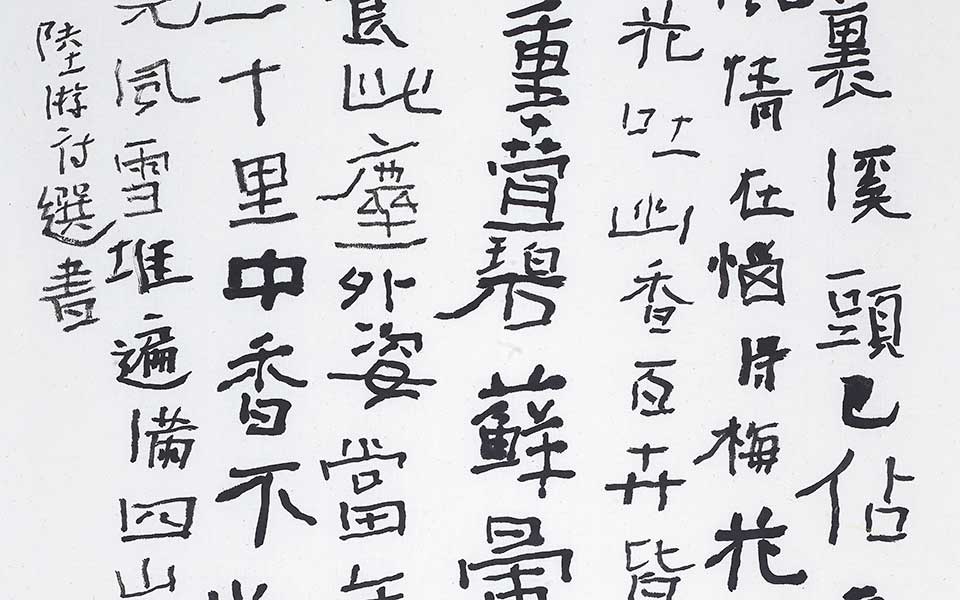 裏溪頭已佔
情在惱梅花
花吐幽香百卉皆
重疊碧蘚暈
養此塵外姿當年
二十里中香不
風雪堆遍滿四山
陸游詩選書